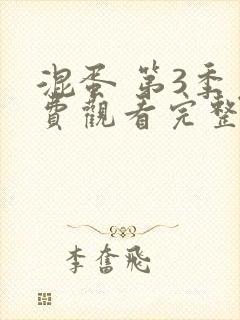 混蛋 第3季
費觀看完整
李奮飛